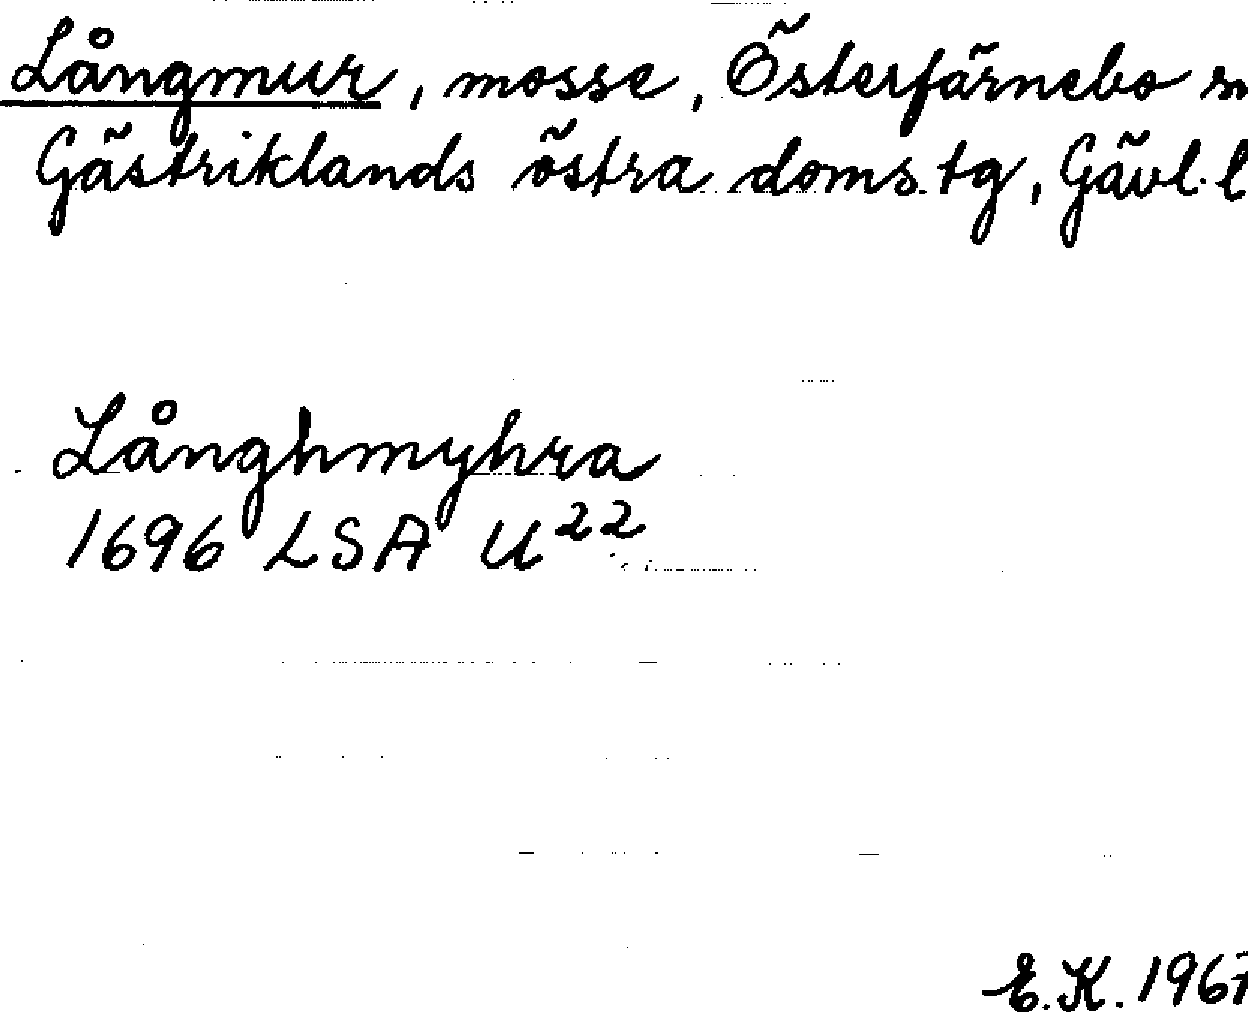 Långmur, mosse, Österfärnebo
Gästriklands östra doms.tg, Gävl. l
Långhmyhra
1696 LSA U²²
E.K. 1967